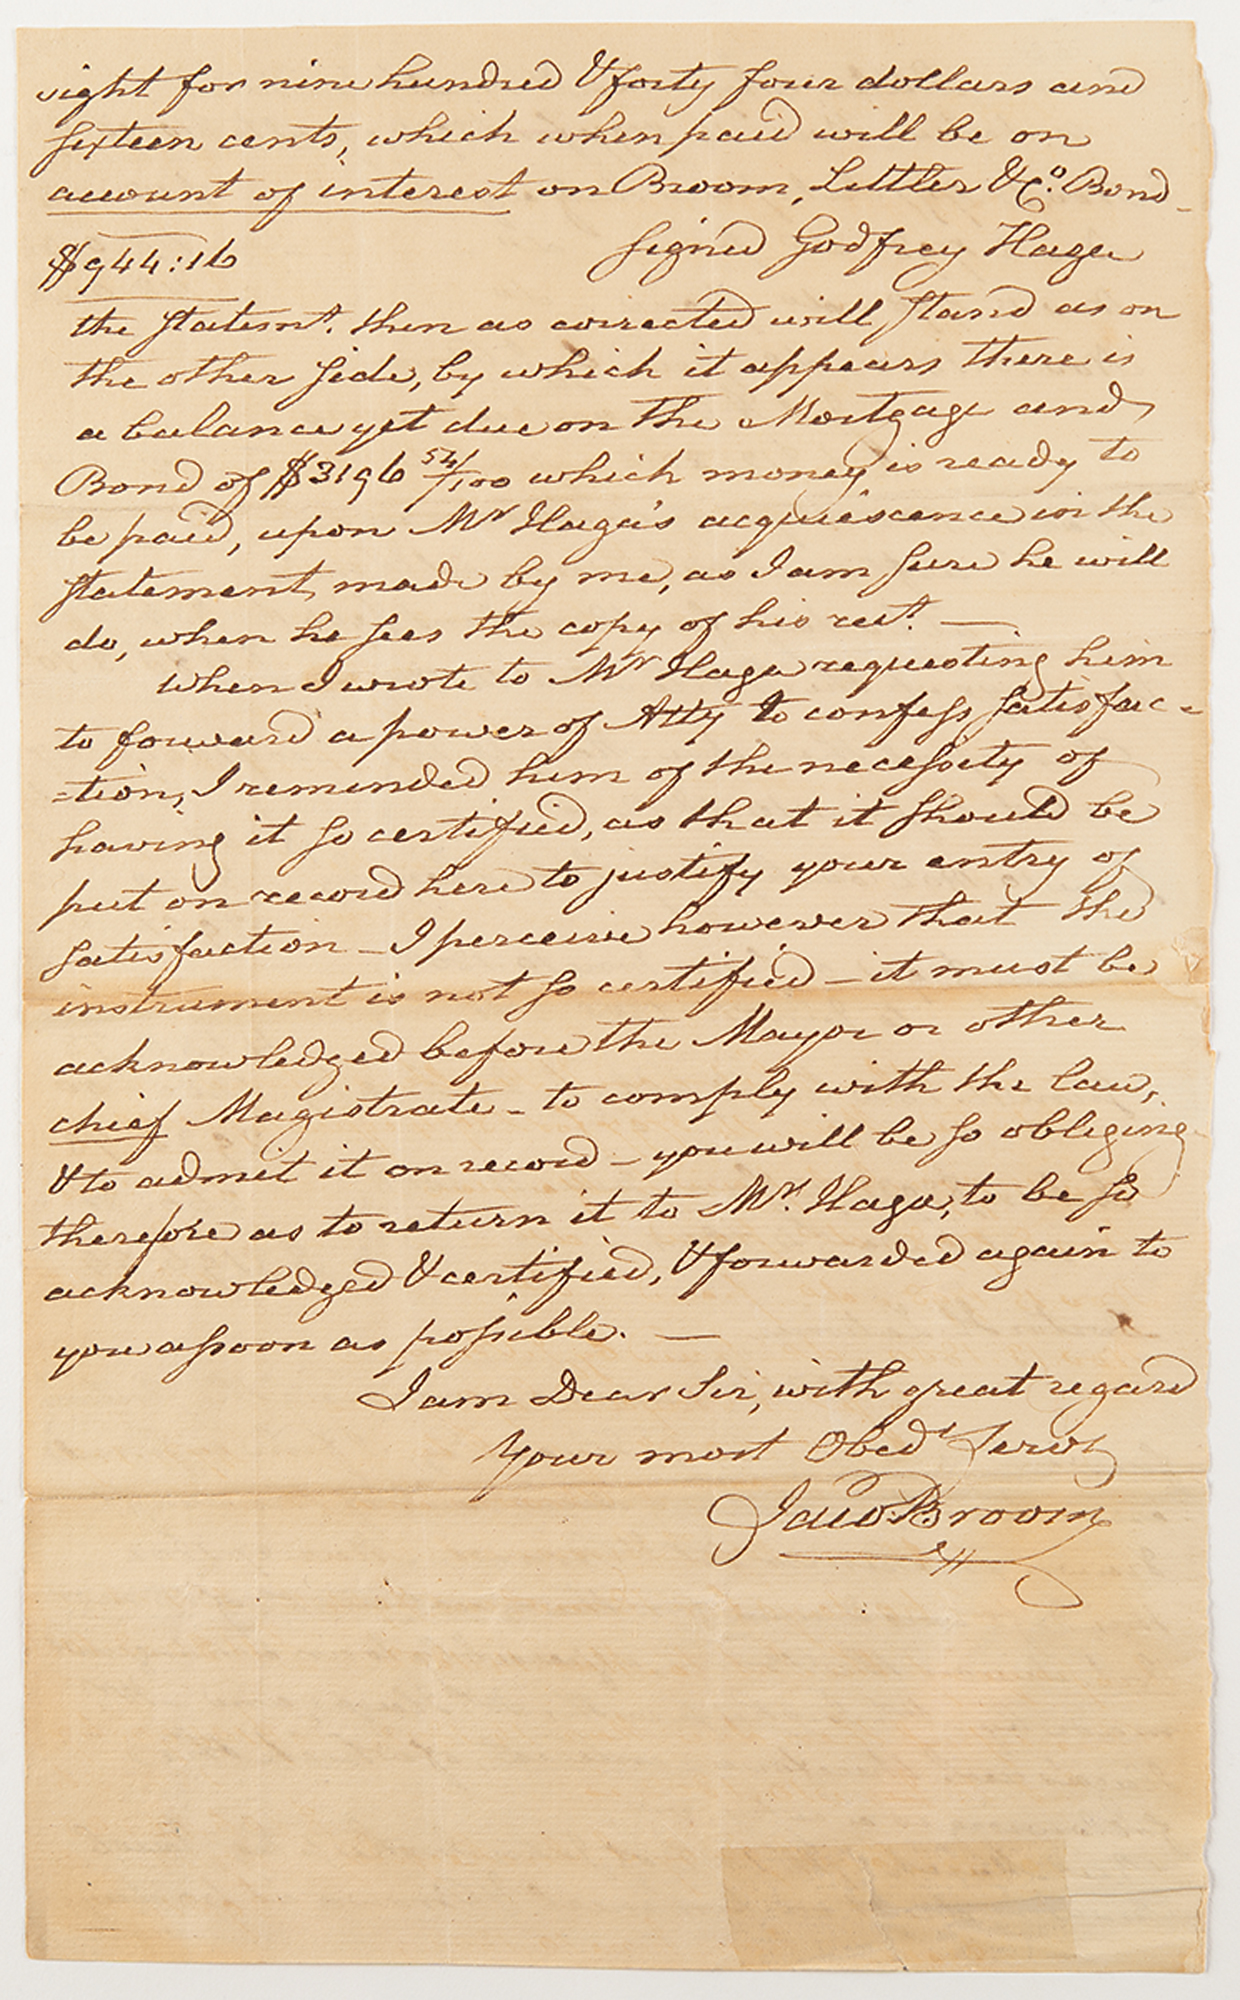 sight for nine hundred & forty four dollars and
sixteen cents, which when paid will be on
account of interest on Broom, Littler & Co. Bond -
$944:16 signed Godfrey Haga
the statemt. then as corrected will stand as on
the other side, by which it appears there is
a balance yet due on the Mortgage and
Bond of $3196 54/100 which money is ready to
be paid, upon Mr Haga's acquiescence in the
statement made by me, as I am sure he will
do, when he sees the copy of his rect. —
when I wrote to Mr Haga requesting him
to forward a power of Atty to confess satisfac-
-tion, I reminded him of the necessity of
having it so certified, as that it should be
put on record here to justify your entry of
satisfaction - I perceive however that the
instrument is not so certified - it must be
acknowledged before the Mayor or other
chief Magistrate - to comply with the law,
& to admit it on record - you will be so obliging
therefore as to return it to Mr. Haga, to be so
acknowledged & certified, & forwarded again to
you assoon as possible. —
I am Dear Sir, with great regard
Your most Obedt Servt
Jaco. Broom